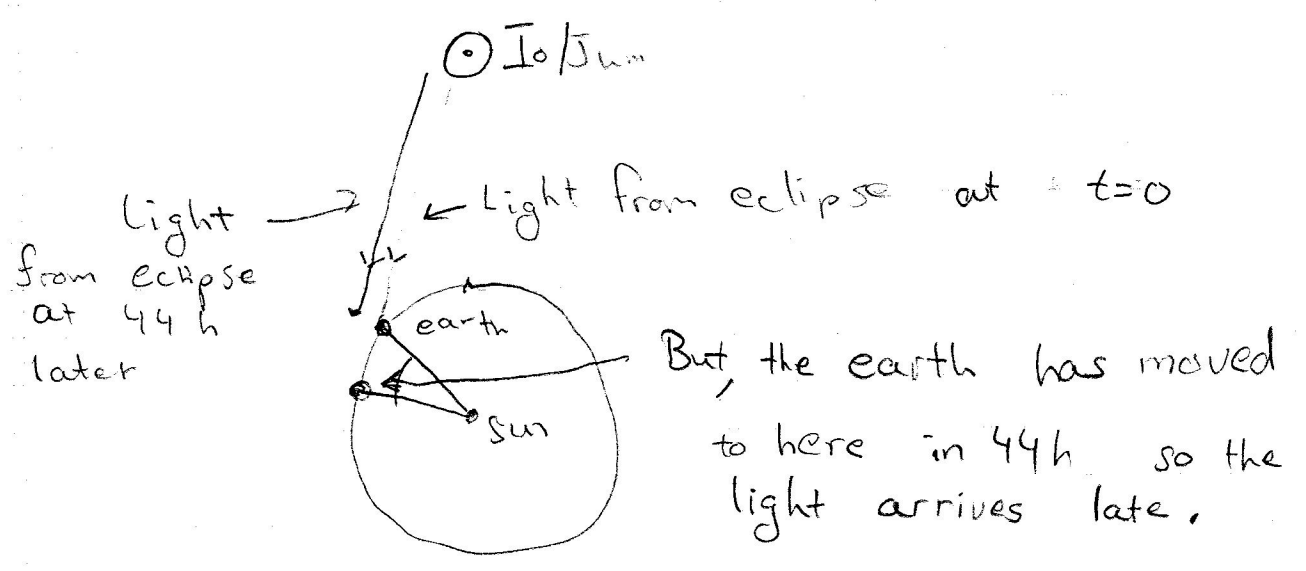 Io/Jum
Light from eclipse at t=0
Light
from eclipse
at 44h
later
earth
sun
But, the earth has moved
to here in 44h so the
light arrives late.